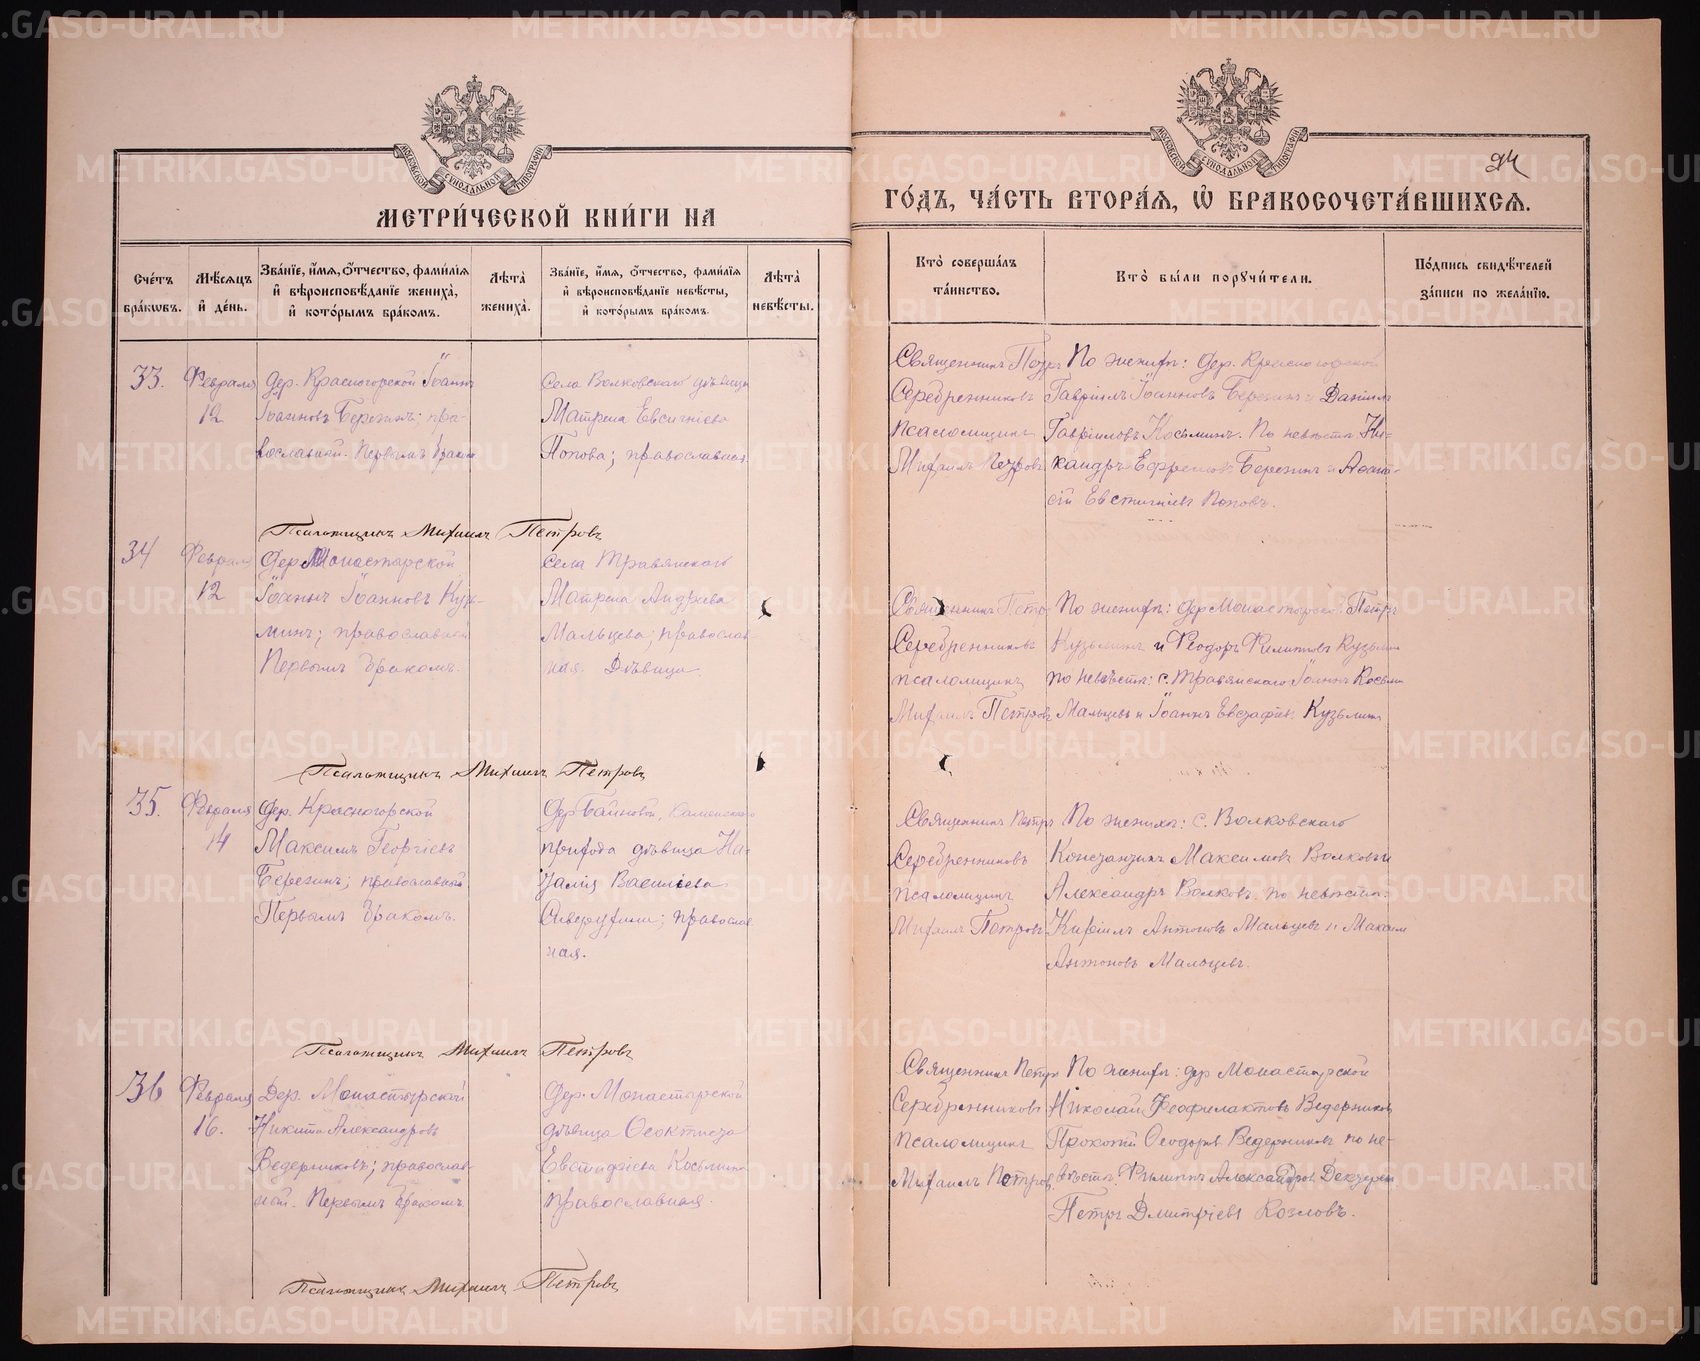 МЕТРИ́ЧЕСКОЙ КНИ́ГИ НА
Сче́тъ бра́кωвъ.
Мѣ́сяцъ и҆ де́нь.
Зва́нїе, и҆́мѧ, ѻ҆́тчество, фами́лїѧ и҆ вѣроисповѣ́данїе жениха̀, и҆ кото́рымъ бра́комъ.
Лѣ́та жениха̀.
Зва́нїе, и҆́мѧ, ѻ҆́тчество, фами́лїѧ и҆ вѣроисповѣ́данїе невѣ́сты, и҆ кото́рымъ бра́комъ.
Лѣ́та невѣ́сты.
33.
Февраля
12
Дер. Красногорской Іоаннъ
Іоанновъ Березинъ; пра-
вославный. Первымъ бракомъ
Села Волковскаго дѣвица
Матрена Евсигніева
Попова; православная
Псаломщикъ Михаилъ Петровъ
34
Февраля
12
Дер Монастырской
Іоаннъ Іоанновъ Кузь-
минъ; православный
Первымъ бракомъ.
Села Травянскаго
Матрена Андреева
Мальцева; православ-
ная. Дѣвица.
Псаломщикъ Михаилъ Петровъ
35.
Февраля
14
Дер. Красногорской
Максимъ Георгіевъ
Березинъ; православный
Первымъ бракомъ.
Дер Байновой, Каменскаго
прихода дѣвица На-
талія Васильева
православ-
ная.
Псаломщикъ Михаилъ Петровъ
36
Февраля
16.
Дер. Монастырской
Никита Александровъ
Ведерниковъ; православ-
ный. Первымъ бракомъ.
Дер. Монастырской
дѣвица Ѳеоктиста
Евстафіева Косьмина
православная.
Псаломщикъ Михаилъ Петровъ
94
ГО́ДЪ, ЧА́СТЬ ВТОРА́Я, Ѡ҆ БРАКОСОЧЕТА́ВШИХСЯ.
Кто̀ соверша́лъ та́инство.
Кто̀ бы́ли порꙋчи́тели.
По́дпись свидѣ́телей за́писи по жела́нїю.
Священникъ Петръ
Серебренниковъ
псаломщикъ
Михаилъ Петровъ
По женихѣ: дер. Красногорской
Гавріилъ Іоанновъ Березинъ и Даніилъ
Гавріиловъ Косьминъ. По невѣстѣ: Ни-
кандръ Ефремовъ Березинъ и Аѳана-
сій Евстигніевъ Поповъ.
Священникъ Петръ
Серебренниковъ
псаломщикъ
Михаилъ Петровъ
По женихѣ: дер Монастырской Петръ
Кузьминъ и Ѳеодоръ Филиповъ Кузьминъ
по невѣстѣ: с. Травянскаго Іоаннъ Косьминъ
Мальцевъ и Іоаннъ Евстафіевъ Кузьминъ
Священникъ Петръ
Серебренниковъ
псаломщикъ
Михаилъ Петровъ
По женихѣ: с. Волковскаго
Константинъ Максимовъ Волковъ и
Александръ Волковъ по невѣстѣ:
Кириллъ Антоновъ Мальцевъ и Максимъ
Антоновъ Мальцевъ.
Священникъ Петръ
Серебренниковъ
псаломщикъ
Михаилъ Петровъ
По женихѣ: дер Монастырской
Николай Феофилактовъ Ведерниковъ
Прокопій Ѳеодоровъ Ведерниковъ по не-
вѣстѣ: Филиппъ Александровъ
Петръ Дмитріевъ Козловъ.
METRIKI.GASO-URAL.RU